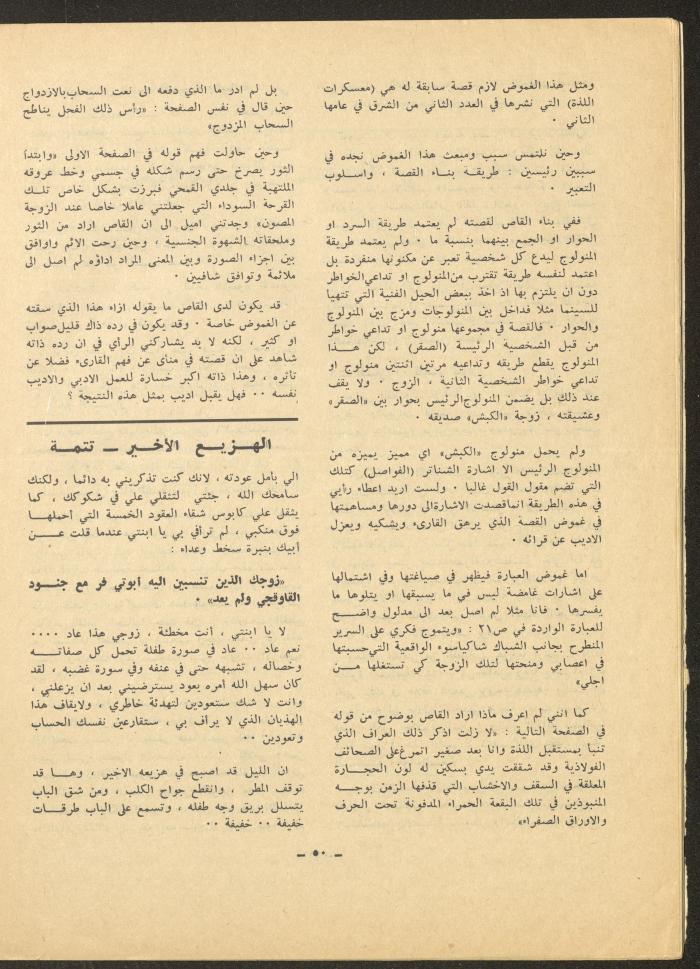 ومثل هذا الغموض لازم قصة سابقة له هي (معسكرات
اللذة) التي نشرها في العدد الثاني من الشرق في عامها
الثاني ٠
وحين نلتمس سبب ومبعث هذا الغموض نجده في
سببين رئيسين : طريقة بناء القصة ، واسلوب
التعبير ٠
ففي بناء القاص لقصته لم يعتمد طريقة السرد او
الحوار او الجمع بينهما بنسبة ما ٠ ولم يعتمد طريقة
المنولوج ليدع كل شخصية تعبر عن مكنونها منفردة بل
اعتمد لنفسه طريقة تقترب من المنولوج او تداعي الخواطر
دون ان يلتزم بها اذ اخذ ببعض الحيل الفنية التي تتهيأ
للسينما مثلا فداخل بين المنولوجات ومزج بين المنولوج
والحوار ٠ فالقصة في مجموعها منولوج او تداعي خواطر
من قبل الشخصية الرئيسة (الصقر) ، لكن هـــذا
المنولوج يقطع طريقه وتداعيه مرتين اثنتين منولوج او
تداعي خواطر الشخصية الثانية ، الزوج ٠ ولا يقف
عند ذلك بل يضمن المنولوج الرئيس بحوار بين «الصقر»
وعشيقته ، زوجة «الكبش» صديقه ٠
ولم يحمل منولوج «الكبش» اي مميز يميزه من
المنولوج الرئيس الا اشارة الشناتر (الفواصل) كتلك
التي تضم مقول القول غالبا ٠ ولست اريد اعطاء رأيي
في هذه الطريقة انما قصدت الاشارة الى دورها ومساهمتها
في غموض القصة الذي يرهق القارىء ويشكيه ويعزل
الاديب عن قرائه ٠
اما غموض العبارة فيظهر في صياغتها وفي اشتمالها
على اشارات غامضة ليس في ما يسبقها او يتلوها ما
يفسرها ٠ فانا مثلا لم اصل بعد الى مدلول واضـــح
للعبارة الواردة في ص٢١ : «ويتموج فكري على السرير
المنطرح بجانب الشباك شاكياسوء الواقعية التي حسبتها
في اعصابي ومنحتها لتلك الزوجة كي تستغلها مـــن
اجلي»
كما انني لم اعرف ماذا اراد القاص بوضوح من قوله
في الصفحة التالية : «لا زلت اذكر ذلك العراف الذي
تنبأ بمستقبل اللذة وانا بعد صغير اتمرغ على الصحائف
الفولاذية وقد شققت يدي بسكين له لون الحجـــارة
المعلقة في السقف والاخشاب التي قذفها الزمن بوجـــه
المنبوذين في تلك البقعة الحمراء المدفونة تحت الحرف
والاوراق الصفراء»
بل لم ادر ما الذي دفعه الى نعت السحاب بالازدواج
حين قال في نفس الصفحة : «رأس ذلك الفحل يناطح
السحاب المزدوج»
وحين حاولت فهم قوله في الصفحة الاولى «وابتدأ
الثور يصرخ حتى رسم شكله في جسمي وخط عروقه
الملتهبة في جلدي القمحي فبرزت بشكل خاص تلـــك
القرحة السوداء التي جعلتني عاملا خاصا عند الزوجة
المصون» وجدتني اميل الى ان القاص اراد من الثور
وملحقاته الشهوة الجنسية ، وحين رحت الائم واوافق
بين اجزاء الصورة وبين المعنى المراد اداؤه لم اصل الى
ملائمة وتوافق شافيين ٠
قد يكون لدى القاص ما يقوله ازاء هذا الذي سقته
عن الغموض خاصة ٠ وقد يكون في رده ذاك قليل صواب
او كثير ، لكنه لا بد يشاركني الرأي في ان رده ذاته
شاهد على ان قصته في منأى عن فهم القارىء فضلا عن
تأثره ، وهذا ذاته اكبر خسارة للعمل الادبي والاديب
نفسه ٠٠ فهل يقبل اديب بمثل هذه النتيجة ؟
الهزيـع الأخيـر ــ تتمة
الي بأمل عودته ، لانك كنت تذكريني به دائما ، ولكنك
سامحك الله ، جئتي لتثقلي علي في شكوكك ، كما
يثقل علي كابوس شقاء العقود الخمسة التي أحملهـا
فوق منكبي ، لم ترأفي بي يا ابنتي عندما قلت عـــن
أبيك بنبرة سخط وعداء :
«زوجك الذين تنسبين اليه أبوتي فر مع جنـــود
القاوقجي ولم يعد» ٠
لا يا ابنتي ، أنت مخطئة ، زوجي هذا عاد ٠٠٠٠
نعم عاد ٠٠ عاد في صورة طفلة تحمل كل صفاتـــه
وخصاله ، تشبهه حتى في عنفه وفي سورة غضبه ، لقد
كان سهل الله أمره يعود يسترضيني بعد ان يزعلني ،
وانت لا شك ستعودين لتهدئة خاطري ، ولايقاف هذا
الهذيان الذي لا يرأف بي ، ستقارعين نفسك الحساب
وتعودين ٠٠
ان الليل قد اصبح في هزيعه الاخير ، وهـــا قد
توقف المطر ، وانقطع جواح الكلب ، ومن شق الباب
يتسلل بريق وجه طفله ، وتسمع على الباب طرقـــات
خفيفة ٠٠ خفيفة ٠٠
ــ ٥٠ ــ